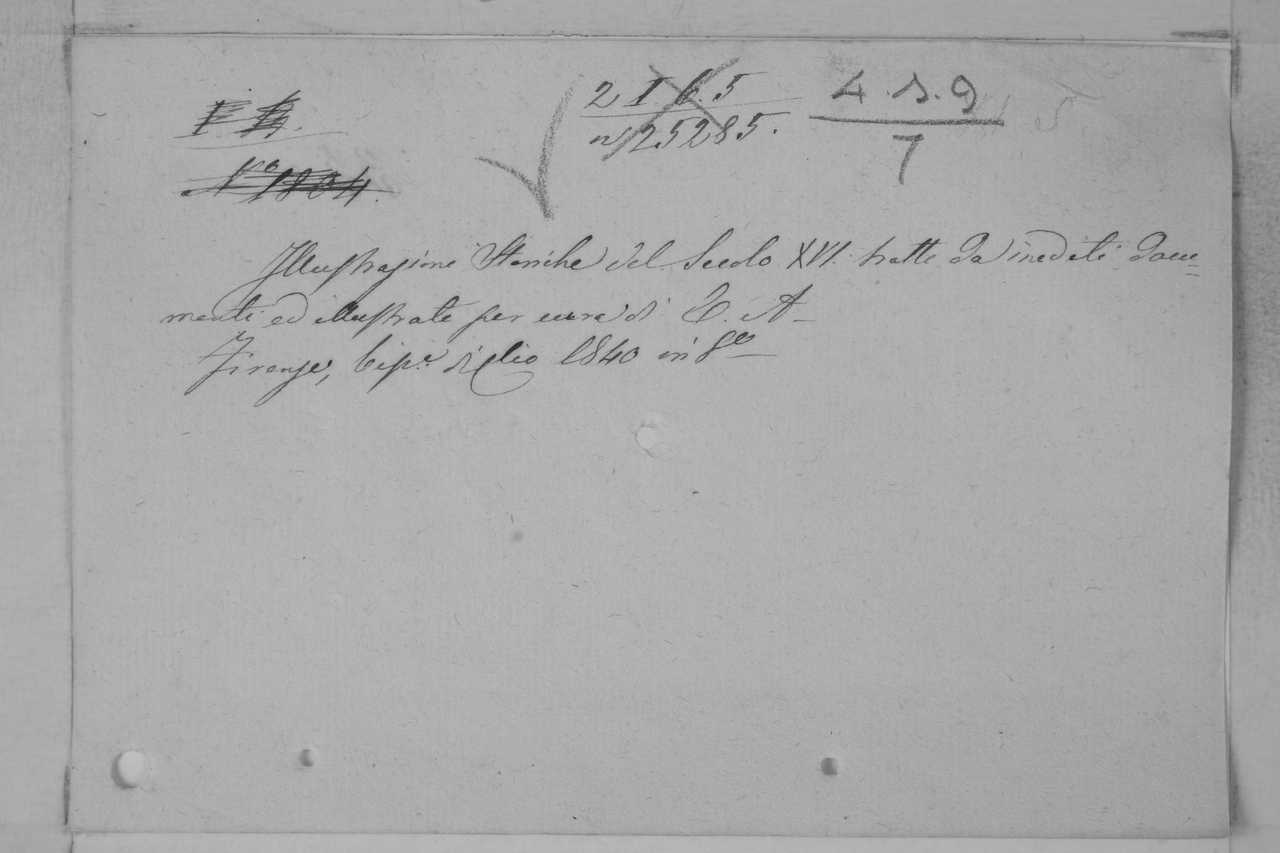 2 I 6. 5
n° 25285.
4. s. 9
7
N° 1804.
Illustrazioni Storiche del Secolo XVI. tratte da inediti docu=
menti ed illustrate per cura di E. A
Firenze, Tip.a di Clio 1840 in 8°